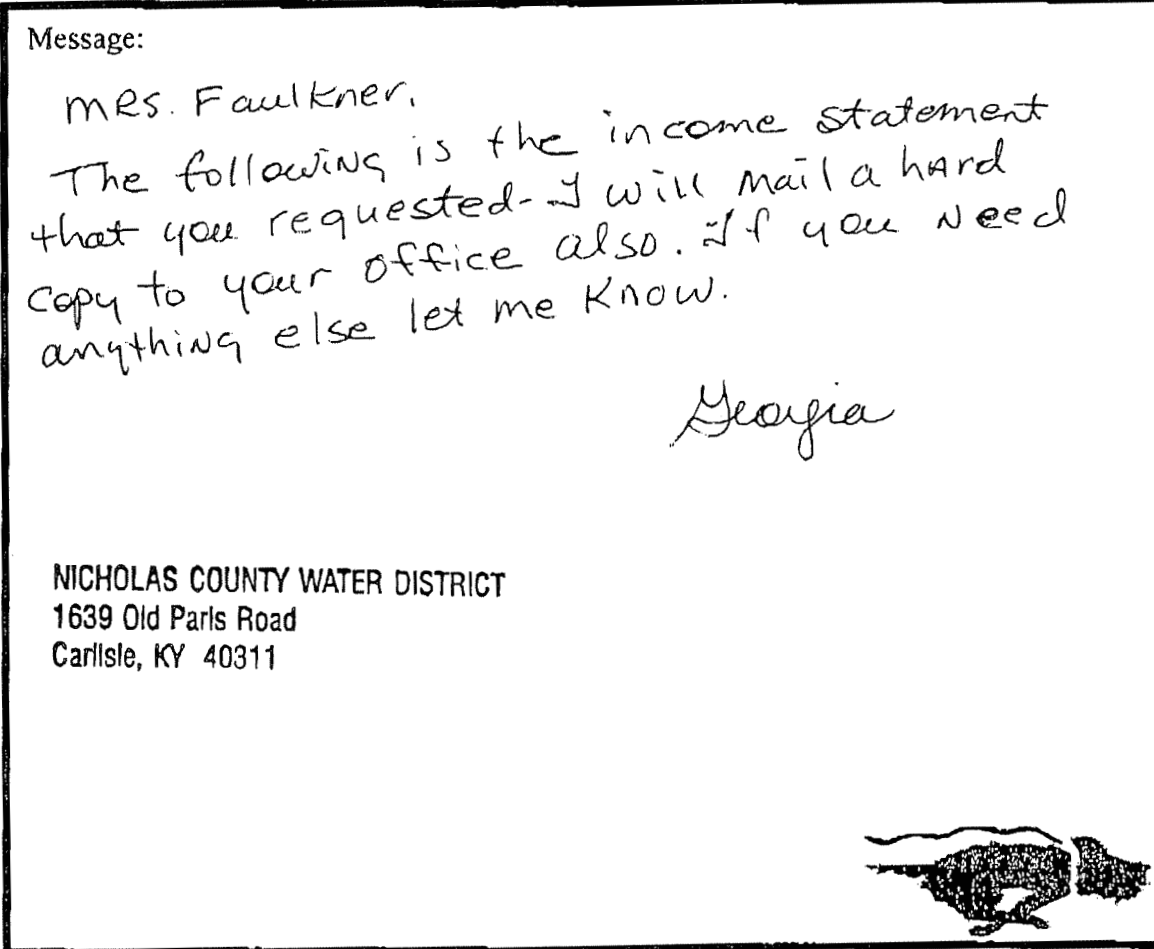 Message:
Mrs. Faulkner,
The following is the income statement
that you requested - I will mail a hard
copy to your office also. If you need
anything else let me know.
Georgia
NICHOLAS COUNTY WATER DISTRICT
1639 Old Paris Road
Carlisle, KY 40311